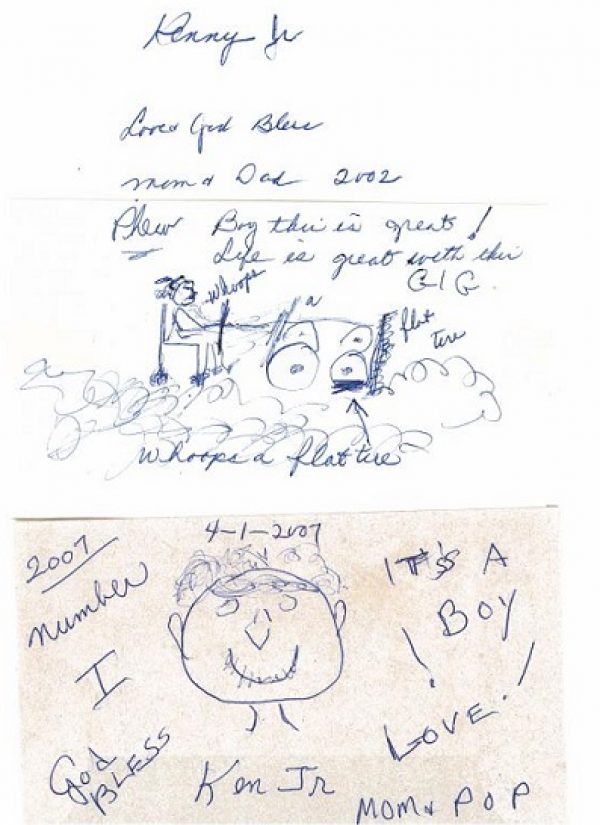 Kenny Jr
Love & God Bless
Mom & Dad 2002
Phew Boy this is great!
Life is great with this
GIG.
Whoops
a
flat
tire
Whoops a flat tire
4-1-2007
2007
number
I
God
BLESS
IT'S A
BOY
!
LOVE.!
Ken Jr
MOM & POP